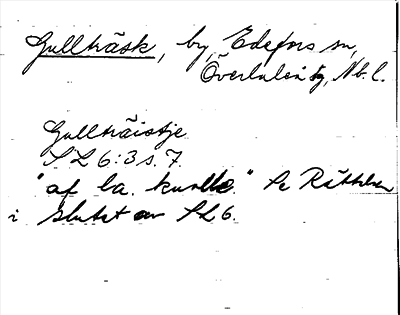 Gullträsk, by, Edefors sn,
Överluleå tg, Nb. l.
Gullträistje
SL 6:3 s. 7.
"af la. kulle." Se Rättelser
i slutet av SL 6.